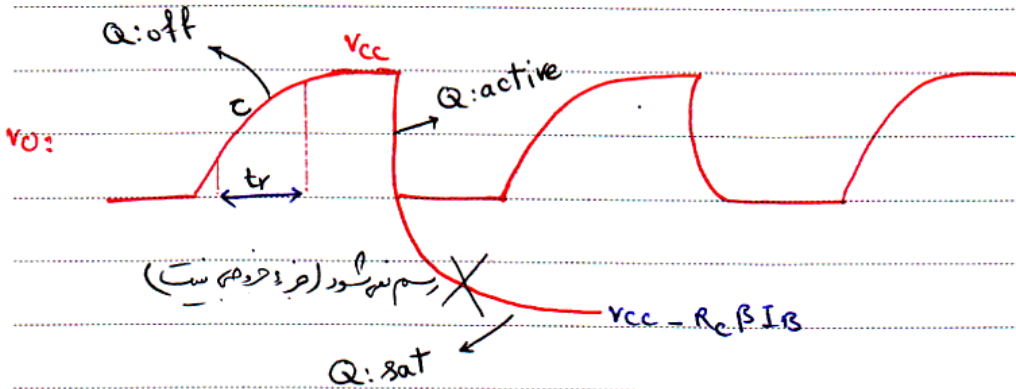 Q:off
Vcc
Q:active
τ
vo:
tr
رسم نمی‌شود (جزء خروجی نیست)
Vcc - Rc β IB
Q: sat